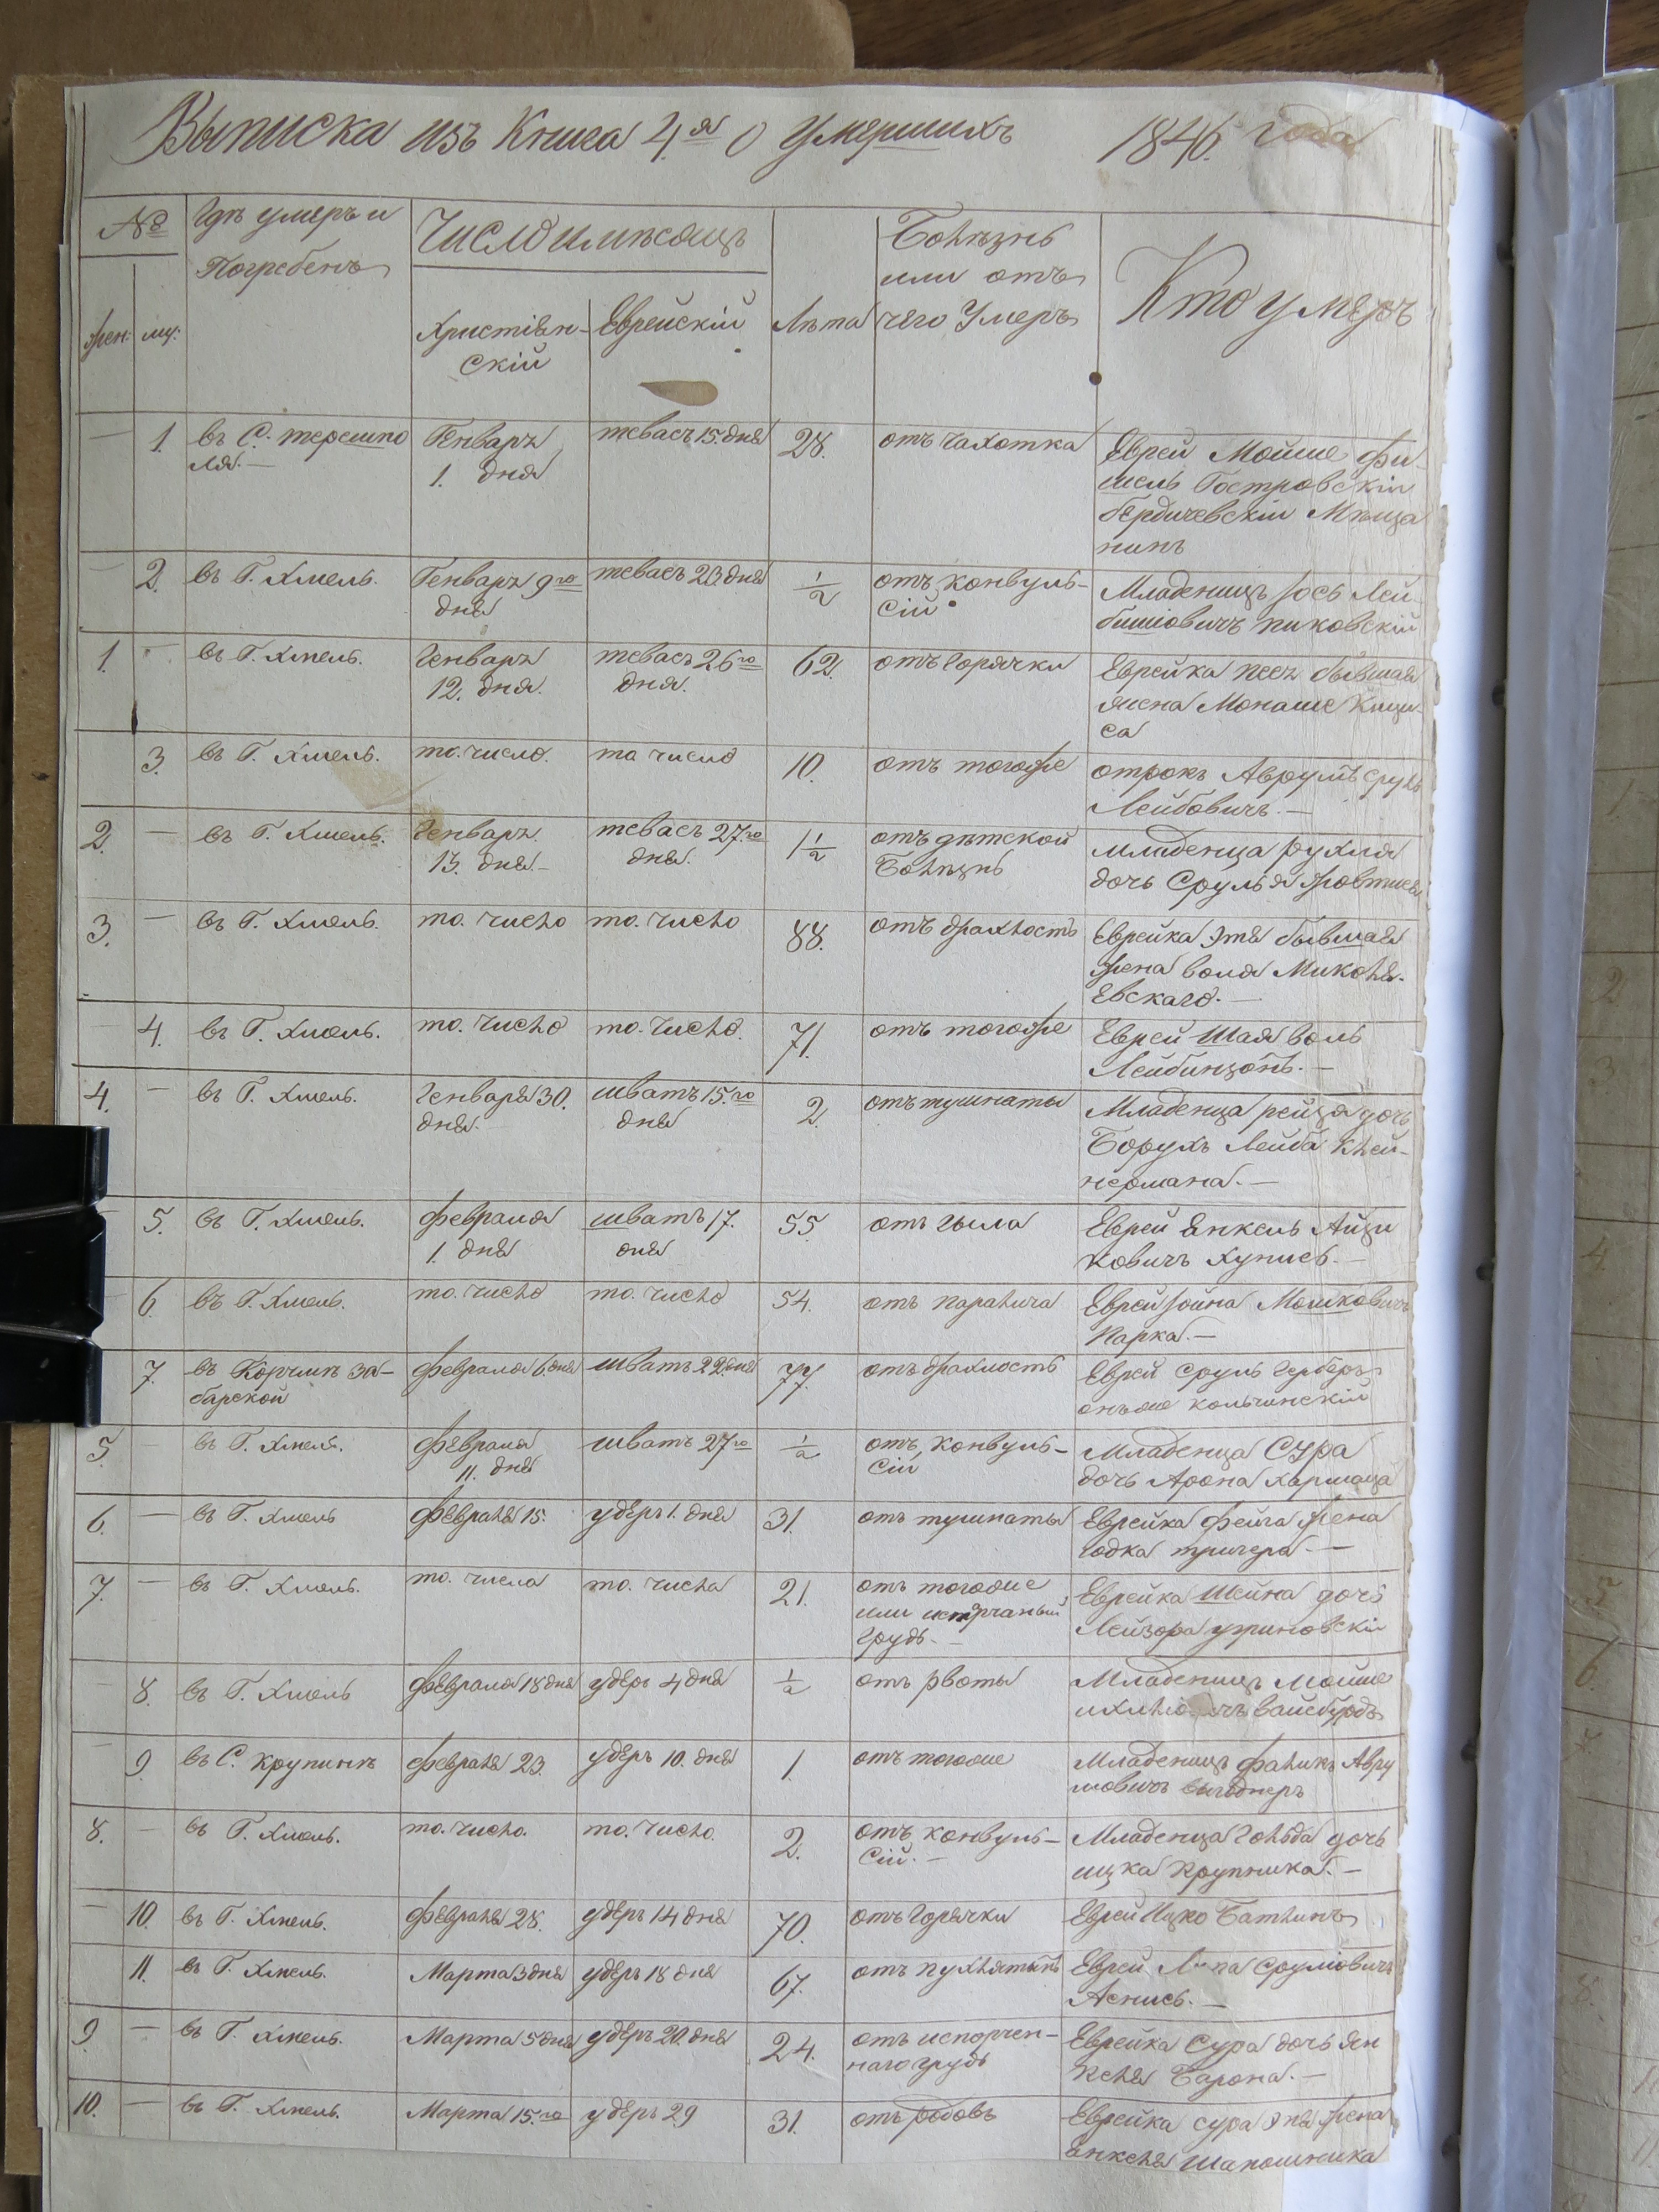 Выписка изъ Книга 4.я О Умершихъ 1846. года
№
Гдѣ умеръ и
Погребенъ
Число и мѣсяцъ
Христіян-
скій
Еврейскій
Лѣта
Болѣзнь
или отъ
чего Умеръ
Кто умеръ
жен: му:
— 1. въ С. терешпо
ля. —
Генваръ
1. дня
тевасъ 15. дня
28.
отъ чахотка
Еврей Мойше Фи-
шель Гостровскій
бердичевскій Мѣща
нинъ
— 2. въ Г. Хмель.
Генваръ 9го
дня
тевасъ 23 дня
1/2
отъ конвуль-
сій
Младенецъ Іось Лей-
бишіовичъ пиковскій
1. — въ Г. Хмель.
Генваръ
12. дня.
тевасъ 26го
дня.
62.
отъ горячки
Еврейка песъ бывшая
жена Монаше
са
3. въ Г. Хмель.
то. число.
то число
10.
отъ тогоже
отрокъ Аврумъ сруль
Лейбовичъ. —
2. — въ Г. Хмель.
Генваръ.
13. дня. —
тевасъ 27.го
дня.
1 1/2
отъ дѣтской
Болѣзнь
младенца рухля
дочь Сруля
3. — въ Г. Хмель.
то. число
то. число
88.
отъ драхлость
Еврейка Этя бывшая
жена воля Миколя-
Евскаго. —
4. въ Г. Хмель.
то. число
то. число.
71.
отъ тогоже
Еврей Шая воль
Лейбинзонъ. —
4. — въ Г. Хмель.
Генваря 30.
дня.
шватъ 15.го
дня
2.
отъ тушнаты
Младенца рейза дочь
Борухъ Лейба Клей-
нермана. —
5. въ Г. Хмель.
февраля
1. дня
шватъ 17.
дня
55.
отъ гыла
Еврей Янкель Айзи
ковичъ Хунисъ. —
6. въ Г. Хмель.
то. число
то. число
54.
отъ паралича
Еврей Іойна Мошковичъ
Парка. —
7. въ Корчмѣ за-
барской
февраля 6. дня
шватъ 22. дня
77.
отъ драхлость
Еврей сруль Герберъ
онъже кольчинскій
5. — въ Г. Хмеля.
февраля
11. дня
шватъ 27го
1/2
отъ конвуль-
сій
Младенца Сура
дочь Арона Хармаца
6. — въ Г. Хмель
февраля 15.
удеръ 1. дня
31.
отъ тушнаты
Еврейка Фейга жена
Іодка тригера. —
7. — въ Г. Хмель.
то. числа
то. числа
21.
отъ тогоже
или
грудь. —
Еврейка Шейна дочь
Лейзора угриновскій
— 8. въ Г. Хмель
февраля 18 дня
удеръ 4 дня
1/2
отъ рвоты
Младенецъ Мойше
Вайсбурдъ
9. въ С. Крупинъ
февраля 23.
удеръ 10. дня
1.
отъ тогоже
Младенецъ фаликъ Авру
мовичъ
8. — въ Г. Хмель.
то. число.
то. число.
2.
отъ конвуль-
сій. —
Младенца Гольда дочь
ицка Крупника. —
— 10. въ Г. Хмель.
февраля 28.
удеръ 14 дня
70.
отъ Горячки
Еврей Ицко Батлинъ
11. въ Г. Хмель.
Марта 3 дня
удеръ 18 дня
67.
отъ
Еврей сруліовичъ
Аснисъ. —
9. — въ Г. Хмель.
Марта 5 дня
удеръ 20. дня
24.
отъ испорчен-
наго грудь
Еврейка Сура дочь Ян
келя Барона. —
10. — въ Г. Хмель.
Марта 15.го
удеръ 29
31.
отъ родовъ
Еврейка сура жена
Янкеля Шапошника